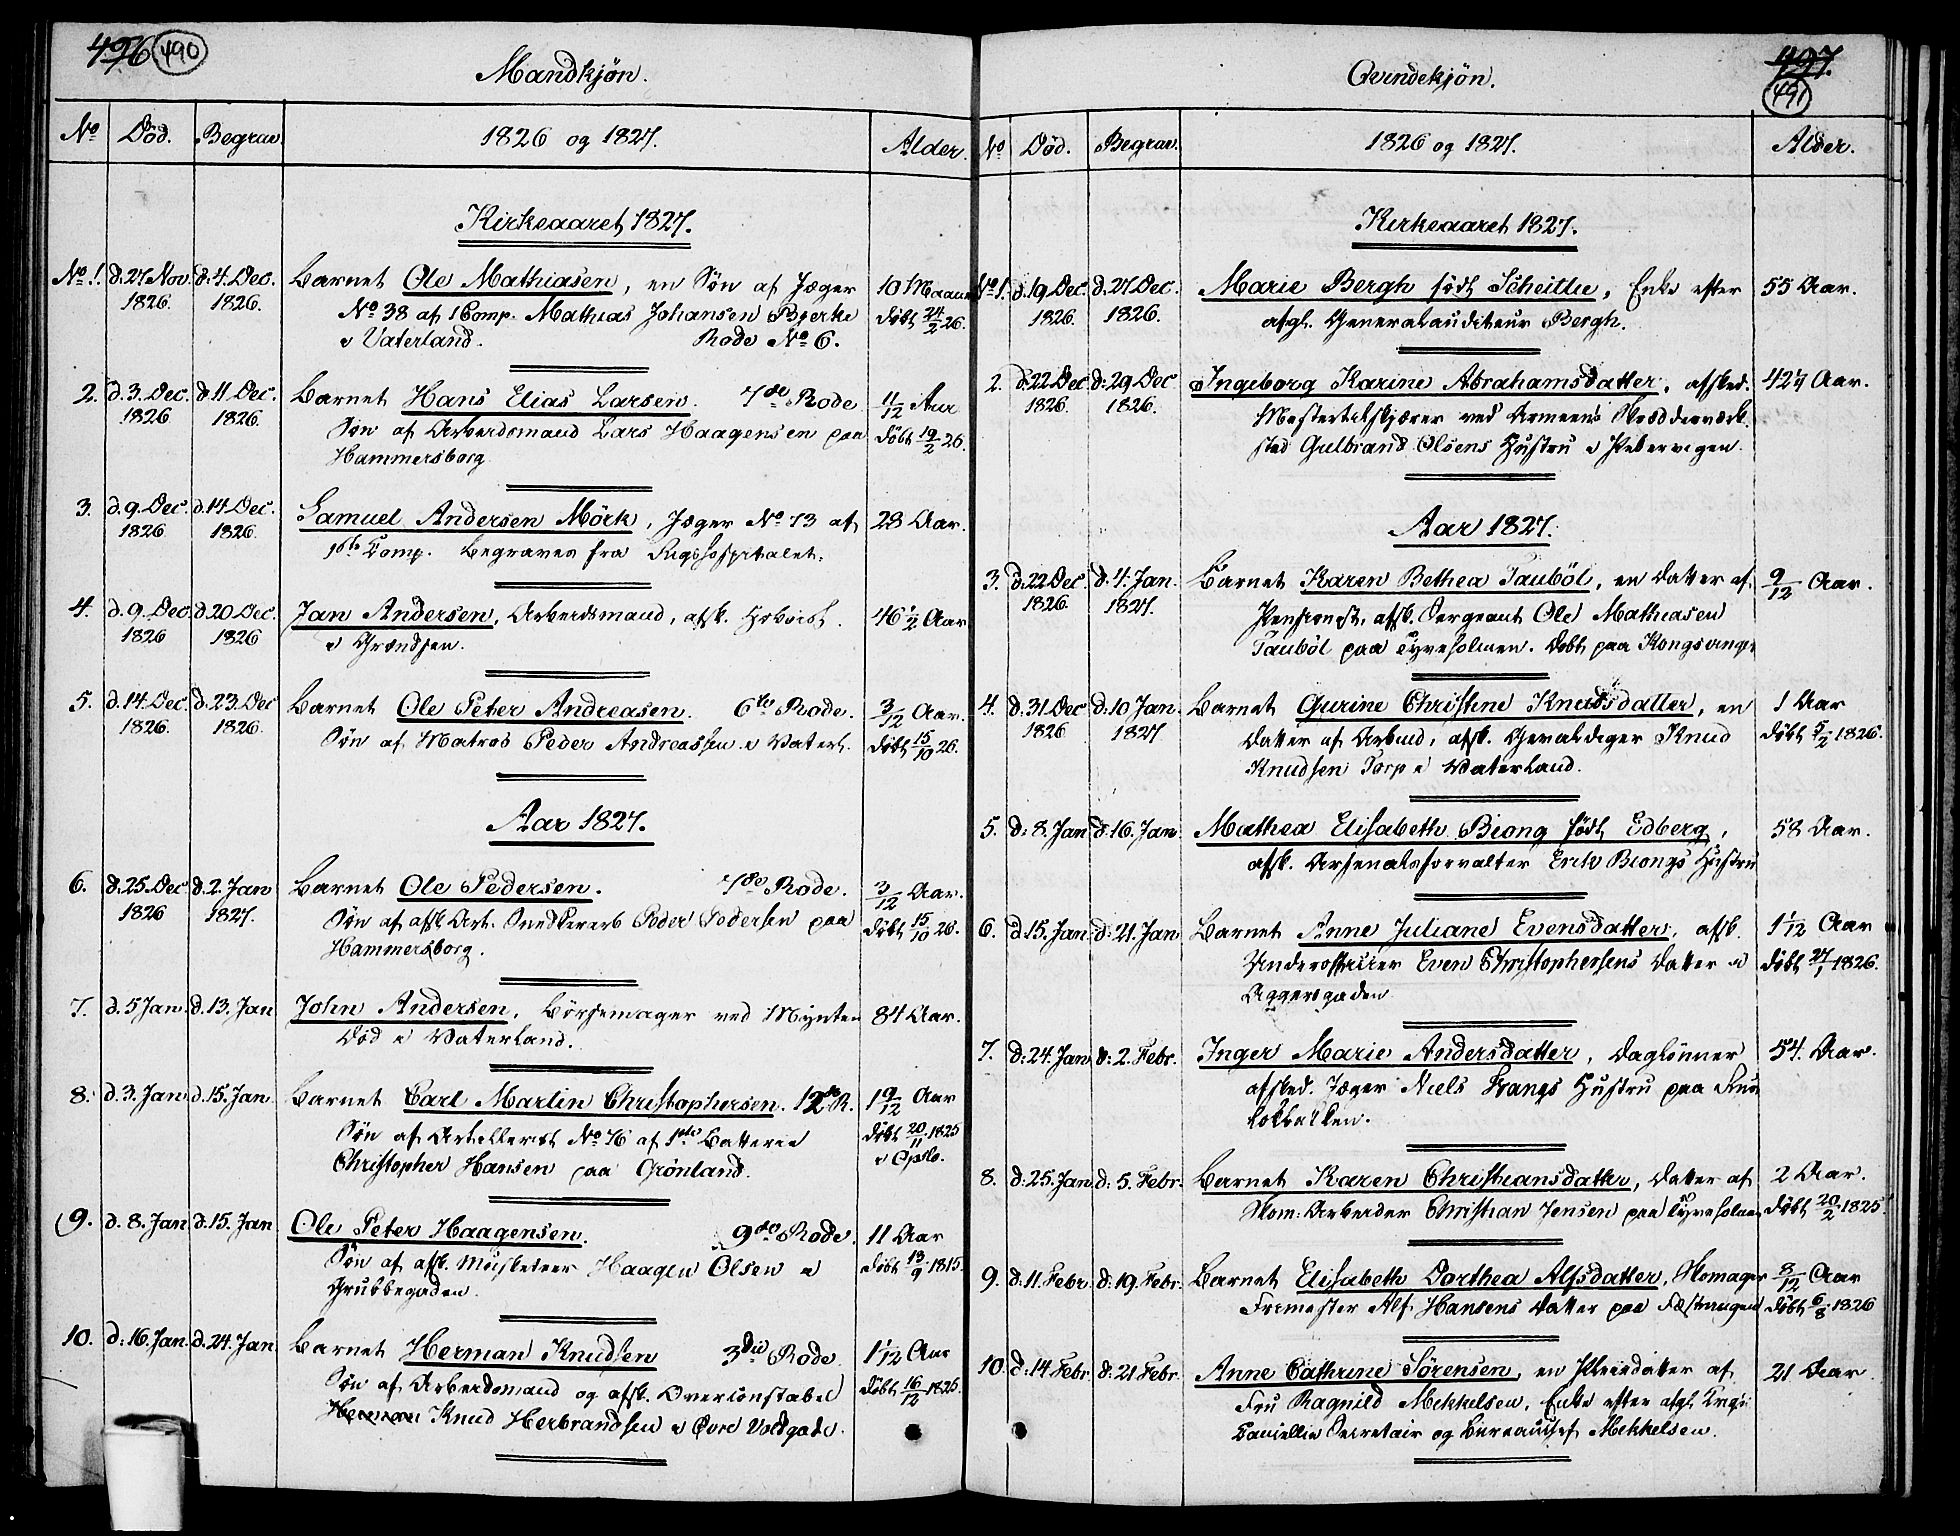 496 490
Mandkjön.
No Död. Begrav. 1826 og 1827. Alder.
Kirkeaaret 1827.
No 1. d. 27 Nov. 1826. d. 4. Dec. 1826. Barnet Ole Mathiasen, en Søn af Jæger 10 Maaned
No 38 af 1 Comp. Mathias Johansen Bjerke Døbt 24/2 26.
i Vaterland. Rode No 6.
2. d. 3. Dec. 1826 d. 11 Dec. 1826. Barnet Hans Elias Larsen. 7de Rode 11/12 Aar
Søn af Arbeidsmand Lars Haagensen paa Døbt 19/2 26.
Hammersborg
3. d. 9. Dec. 1826 d. 14. Dec. 1826. Samuel Andersen Mörk, Jæger No 73 af 28 Aar.
1ste Comp. Begraves fra Rigshospitalet.
4. d. 9. Dec 1826 d. 20 Dec. 1826 Jan Andersen, Arbeidsmand, afsk. 46 1/2 Aar
i Grændsen.
5. d. 14. Dec. 1826. d. 23. Dec 1826. Barnet Ole Peter Andreasen. 6te Rode. 3/12 Aar.
Søn af Matros Peder Andreassen i Vaterl. Døbt 15/10 26.
Aar 1827.
6. d. 25. Dec. 1826 d. 2. Jan 1827. Barnet Ole Pedersen. 7de Rode. 3/12 Aar.
Søn af afsk. Art. Peder Pedersen paa Døbt 15/10 26.
Hammersborg.
7. d. 5 Jan. d. 13. Jan John Andersen, Børsemager ved Mynten 84 Aar.
Død i Vaterland.
8. d. 3. Jan. d. 15. Jan. Barnet Carl Martin Christophersen. 12te R. 1 9/12 Aar
Søn af Artillerist No 76 af 1ste Batterie Døbt 20/11 1825
Christopher Hansen paa Grönland. i Opslo.
9. d. 8. Jan d. 15. Jan Ole Peter Haagensen. 9de Rode. 11 Aar
Søn af afsk. Musketeer Haagen Olsen i Døbt 13/9 1815.
Grubbegaden.
10. d. 16. Jan. d. 24. Jan. Barnet Herman Knudsen 3die Rode 1 1/12 Aar
Søn af Arbeidsmand og afsk. Overconstabel Døbt 16/12 1825.
Knud Herbrandsen i Övre Voldgade.
497.
491
Qvindekjön.
No Död. Begrav. 1826 og 1827. Alder.
Kirkeaaret 1827.
No 1. d. 19. Dec. 1826. d. 27 Dec. 1826. Marie Bergh født Scheitlie, Enke efter 55 Aar.
afgl. Generalauditeur Bergh.
2. d. 22 Dec. 1826. d. 29. Dec 1826. Ingeborg Karine Abrahamsdatter, afsked. 42 1/4 Aar.
Mestertilskjærer ved Armeens
sted Gulbrand Olsens Hustru i Pebervigen.
Aar 1827.
3. d. 22 Dec. 1826. d. 4. Jan. 1827. Barnet Karen Bethea Tauböl, en Datter af 9/12 Aar.
Pensionist, afsk. Sergeant Ole Mathiasen
Tauböl paa Tyveholmen. Døbt paa Kongsvinger
4. d. 31. Dec 1826 d. 10. Jan. 1827 Barnet Gurine Christine Knudsdatter, en 1 Aar
Datter af Arbmd, afsk. Gevaldiger Knud Døbt 5/2 1826.
Knudsen Torp i Vaterland.
5. d. 8. Jan d. 16. Jan. Mathea Elisabeth Biong født Edberg, 58 Aar.
afsk. Arsenalsforvalter Erik Biongs Hustru
6. d. 15. Jan. d. 21. Jan Barnet Anne Juliane Evensdatter, afsk. 1 1/12 Aar
Underofficier Even Christophersens Datter i Døbt 27/1 1826.
Aggersgaden
7. d. 24. Jan d. 2. Febr. Inger Marie Andersdatter, Daglønner 54. Aar.
afsked. Jæger Niels Frangs Hustru paa
8. d. 25. Jan d. 5. Febr. Barnet Karen Christiansdatter, Datter af 2 Aar.
Arbeider Christian Jensen paa Tyveholmen Døbt 20/2 1825
9. d. 11. Febr. d. 19. Febr. Barnet Elisabeth Dorthea Alfsdatter, Skomager 8/12 Aar
Alf Hansens Datter paa Fæstningen Døbt 6/8 1826
10. d. 14. Febr. d. 21. Febr. Anne Cathrine Sörensen, en Pleiedatter af 21 Aar
Fru Ragnild Mekkelsen, Enke efter afgl. Krigs
Cancellie Secretair og Bureauchef Mekkelsen.